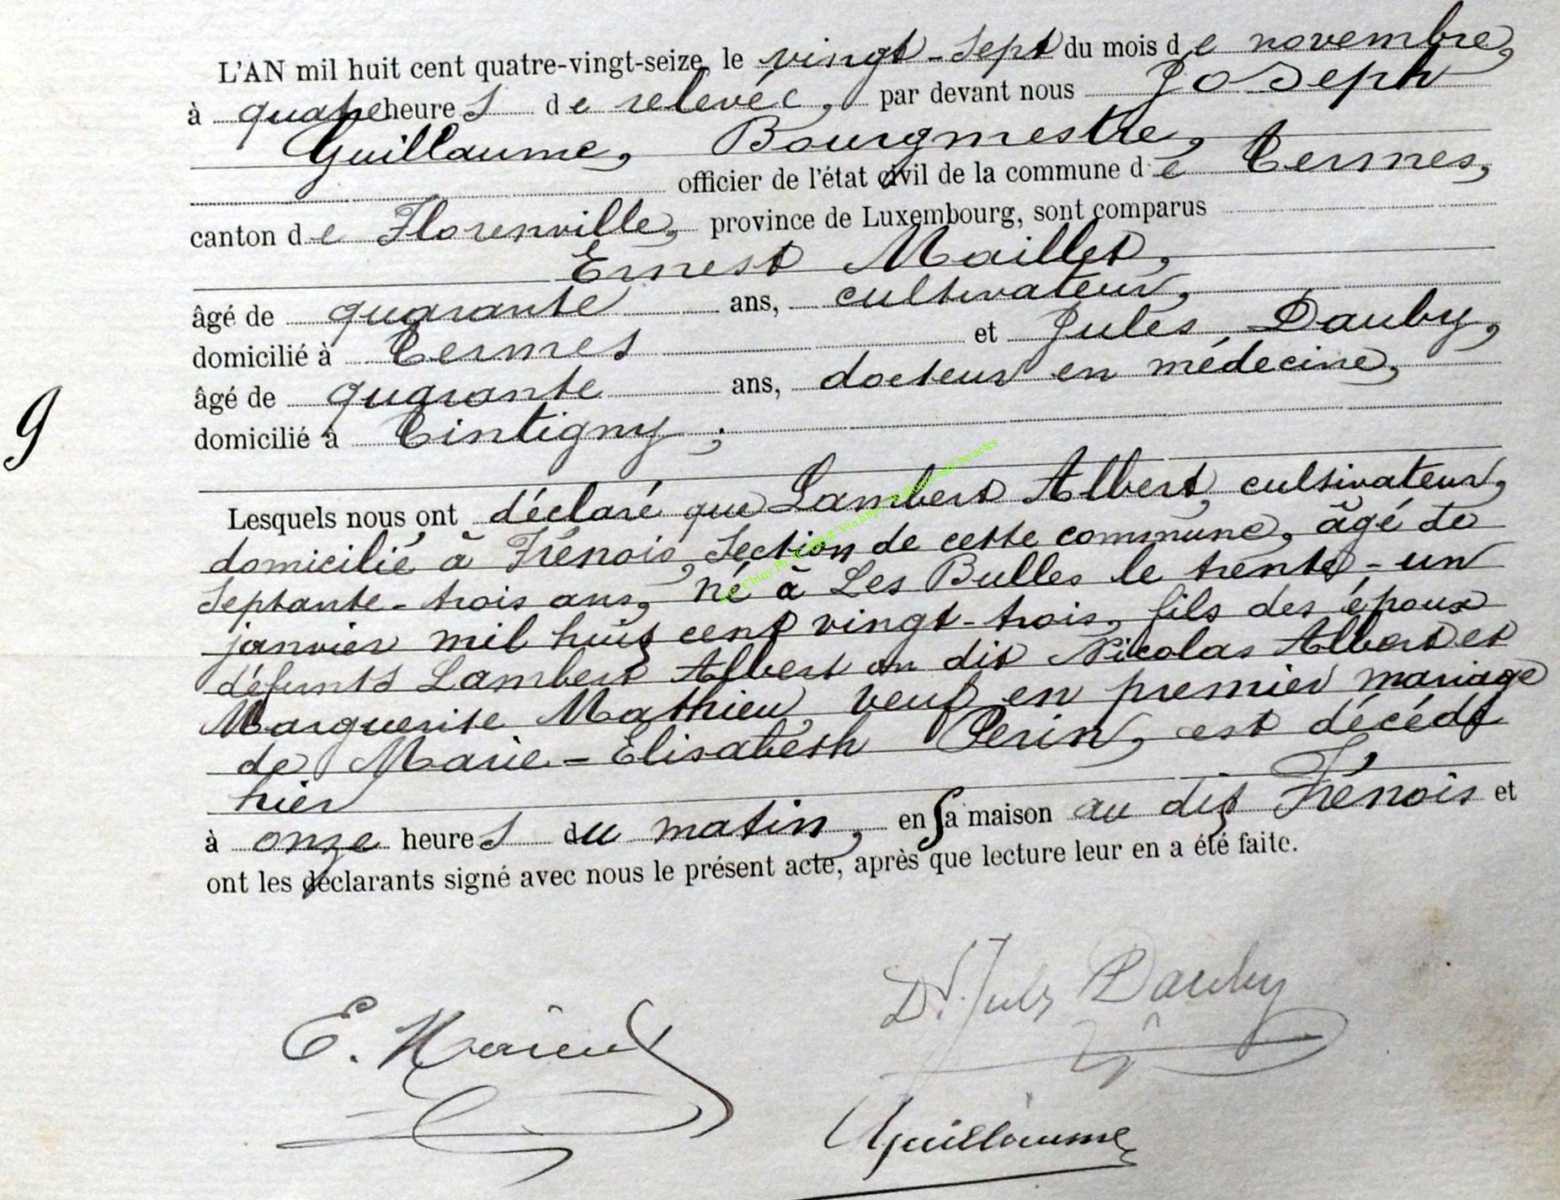 L'AN mil huit cent quatre-vingt-seize, le vingt-sept du mois de novembre,
à quatre heures de relevée, par devant nous Joseph
Guillaume, Bourgmestre,
officier de l'état civil de la commune de Termes,
canton de Florenville, province de Luxembourg, sont comparus
Ernest Maillet,
âgé de quarante ans, cultivateur,
domicilié à Termes et Jules Dauby,
âgé de quarante ans, docteur en médecine,
domicilié à Tintigny ;
9
Lesquels nous ont déclaré que Lambert Albert, cultivateur,
domicilié à Frénois, Section de cette commune, âgé de
Septante-trois ans, né à Les Bulles le trente-un
janvier mil huit cent vingt-trois, fils des époux
défunts Lambert Albert ou dit Nicolas Albert et
Marguerite Mathieu, veuf en premier mariage
de Marie-Elisabeth Perin, est décédé
hier
à onze heures du matin, en sa maison au dit Frénois et
ont les déclarants signé avec nous le présent acte, après que lecture leur en a été faite.
Dr. Jules Dauby
E.
Guillaume